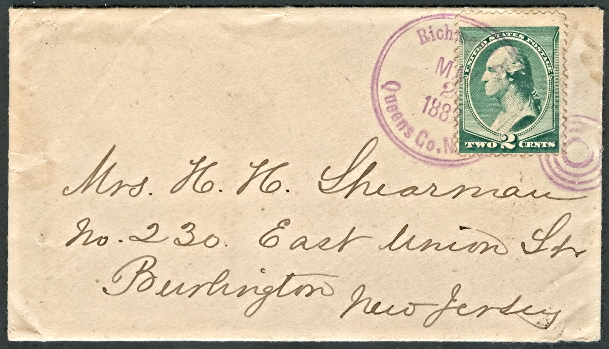 Rich
M
2
188
Queens Co. N
UNITED STATES POSTAGE
TWO 2 CENTS
Mrs. H. H. Shearman
No. 230. East Union Str
Burlington
New Jersey